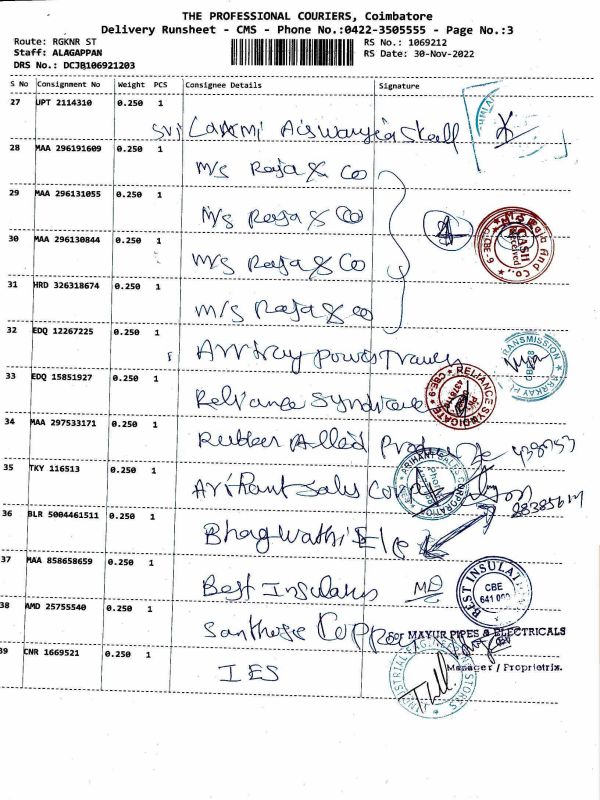 THE PROFESSIONAL COURIERS, Coimbatore
Delivery Runsheet - CMS - Phone No.:0422-3505555 - Page No.:3
Route: RGKNR ST
RS No.: 1069212
Staff: ALAGAPPAN
RS Date: 30-Nov-2022
DRS No.: DCJB106921203
S No Consignment No Weight PCS Consignee Details Signature
27 UPT 2114310 0.250 1
Sri Laxmi
28 MAA 296191609 0.250 1
M/s Raja & Co
29 MAA 296131055 0.250 1
M/s Raja & Co
30 MAA 296130844 0.250 1
M/s Raja & Co
Raja And Co., CBE-9 CASH Received
31 HRD 326318674 0.250 1
M/s Raja & Co
32 EDQ 12267225 0.250 1
Power
TRANSMISSION
33 EDQ 15851927 0.250 1
Reliance Syndicate
RELIANCE SYNDICATE CBE-9
34 MAA 297533171 0.250 1
Rubber Allied
35 TKY 116513 0.250 1
Arihant Sales
ARIHANT SALES CORPORATION
36 BLR 5004461511 0.250 1
Bhagwathi Ele
37 MAA 858658659 0.250 1
Best Insulates
BEST INSULA CBE
38 AMD 25755540 0.250 1
Santhosh Copper
For MAYUR PIPES & ELECTRICALS
Manager / Proprietrix.
39 CNR 1669521 0.250 1
IES
INDUSTRIAL STORES